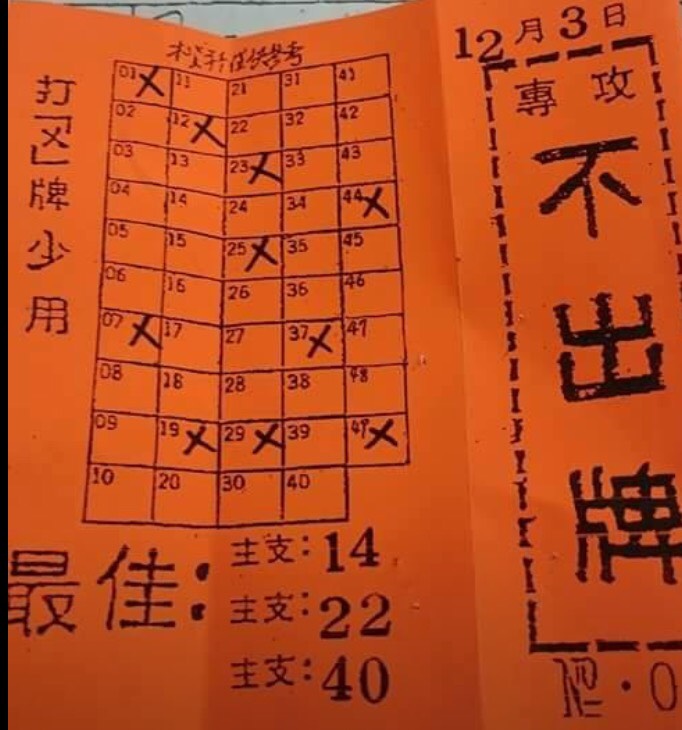 12月3日
專攻
不出牌
№·0
打「X」牌少用
機孖僅供參考
01 X 11 21 31 41
02 12 X 22 32 42
03 13 23 X 33 43
04 14 24 34 44 X
05 15 25 X 35 45
06 16 26 36 46
07 X 17 27 37 X 47
08 18 28 38 48
09 19 X 29 X 39 49 X
10 20 30 40
最佳:
主支:14
主支:22
主支:40